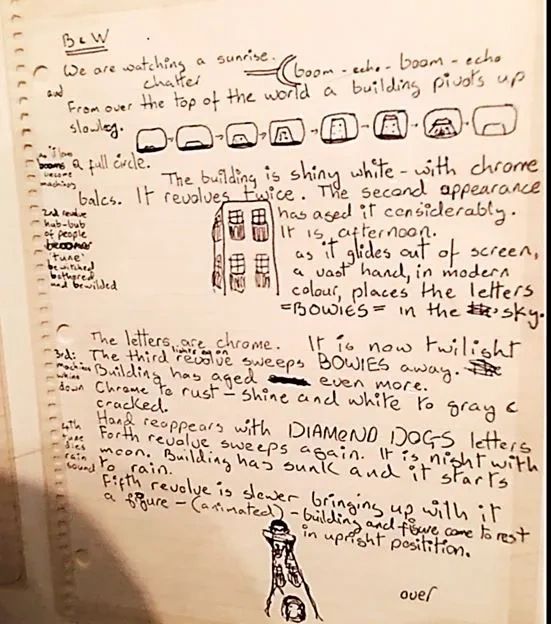 B & W
We are watching a sunrise. boom - echo - boom - echo
and chatter
From over the top of the world a building pivots up
slowley.
a full circle.
become
machinery
The building is shiny white - with chrome
balcs. It revolves twice. The second appearance
has aged it considerably.
It is afternoon.
as it glides out of screen,
a vast hand, in modern
colour, places the letters
=BOWIES= in the sky.
2nd revolve
hub-bub
of people
'tune'
bewitched
bothered
and bewilded
The letters are chrome. It is now twilight
The third revolve sweeps BOWIES away.
Building has aged even more.
Chrome to rust - shine and white to gray &
cracked.
3rd:
machine
whine
down
Hand reappears with DIAMOND DOGS letters
Forth revolve sweeps again. It is night with
moon. Building has sunk and it starts
to rain.
4th
tune
dies
rain
sound
Fifth revolve is slower bringing up with it
a figure - (animated) - building and figure come to rest
in upright posistion.
over